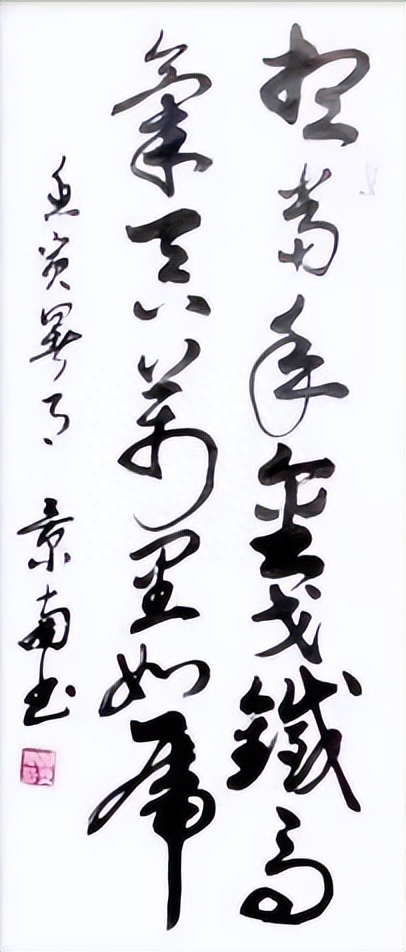 想當年金戈鐵馬
氣吞萬里如虎
寅月 景南书